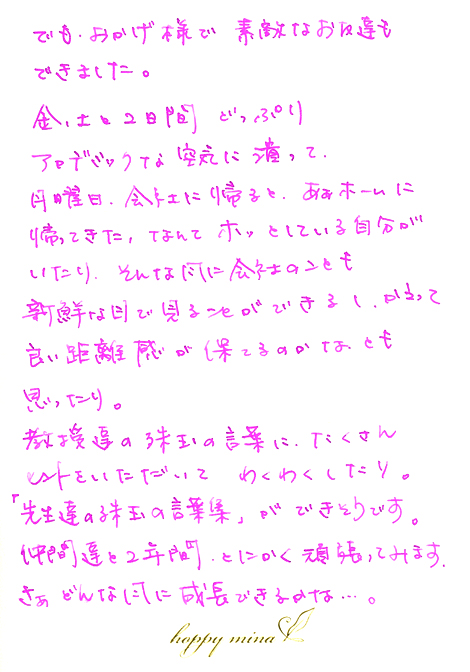 でも・おかげ様で 素敵なお友達も
できました。
金、土と2日間 どっぷり
アカデミックな空気に漬って、
月曜日、会社に帰ると、ああホームに
帰ってきた、なんて ホッとしている自分が
いたり、そんな風に会社のことも
新鮮な目で見ることができるし、かえって
良い距離感が保てるのかな、とも
思ったり。
教授達の珠玉の言葉に、たくさん
ヒントをいただいて わくわくしたり。
「先生達の珠玉の言葉集」ができそうです。
仲間達と2年間、とにかく頑張ってみます。
さぁ どんな風に成長できるかな…。
happy mina